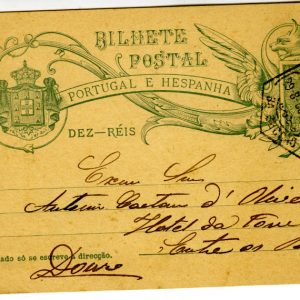 BILHETE
POSTAL
PORTUGAL E HESPANHA
DEZ-RÉIS
Exmo Snr
Antonio Caetano d'Olive
Hotel da Torre
Entre os
ado só se escreve a direcção.
Douro